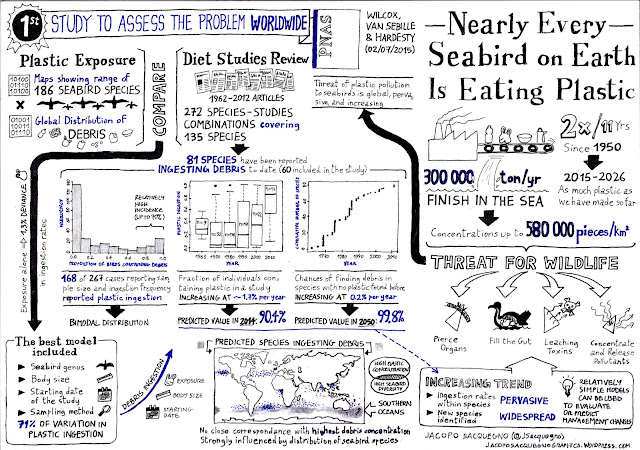 1st STUDY TO ASSESS THE PROBLEM WORLDWIDE
PNAS
WILCOX,
VAN SEBILLE
& HARDESTY
(02/07/2015)
Nearly Every
Seabird on Earth
Is Eating Plastic
Plastic Exposure
Maps showing range of
186 SEABIRD SPECIES
X
Global Distribution of
DEBRIS
COMPARE
Diet Studies Review
1962-2012 ARTICLES
272 SPECIES-STUDIES
COMBINATIONS covering
135 SPECIES
Threat of plastic pollution
to seabirds is global, perva
sive, and increasing
2x/11 Yrs
Since 1950
2015-2026
As much plastic as
we have made so far
300 000 ton/yr
FINISH IN THE SEA
Concentrations up to 580 000 pieces/km²
81 SPECIES have been reported
INGESTING DEBRIS to date (60 included in the study)
RELATIVELY
HIGH
INCIDENCE
(UP TO 90%)
FREQUENCY
PROPORTION OF BIRDS CONTAINING DEBRIS
PLASTIC INGESTION
YEAR
CUMULATIVE NUMBER OF SPECIES
YEAR
Exposure alone → 43% DEVIANCE
in ingestion rates
168 of 267 cases reporting sam
ple size and ingestion frequency
reported plastic ingestion
BIMODAL DISTRIBUTION
Fraction of individuals con
taining plastic in a study
INCREASING AT ~1.7% per year
PREDICTED VALUE IN 2014: 90,4%
Chances of finding debris in
species with no plastic found before
INCREASING AT 0.2% per year
PREDICTED VALUE IN 2050: 99,8%
THREAT FOR WILDLIFE
Pierce
Organs
Fill the Gut
Leaching
Toxins
Concentrate
and Release
Pollutants
The best model
included
Seabird genus
Body size
Starting date
of the study
Sampling method
71% OF VARIATION IN
PLASTIC INGESTION
DEBRIS INGESTION
EXPOSURE
BODY SIZE
STARTING
DATE
PREDICTED SPECIES INGESTING DEBRIS
HIGH PLASTIC
CONCENTRATION
HIGH SEABIRD
DIVERSITY
SOUTHERN
OCEANS
No close correspondence with highest debris concentration
Strongly influenced by distribution of seabird species
INCREASING TREND
Ingestion rates
within species
PERVASIVE
New species
identified
WIDESPREAD
RELATIVELY
SIMPLE MODELS
CAN BE USED
TO EVALUATE
OR PREDICT
MANAGEMENT CHANGES
JACOPO SACQUEGNO (@JSacquegno)
JACOPOSACQUEGNOGRAPHICS.WORDPRESS.COM